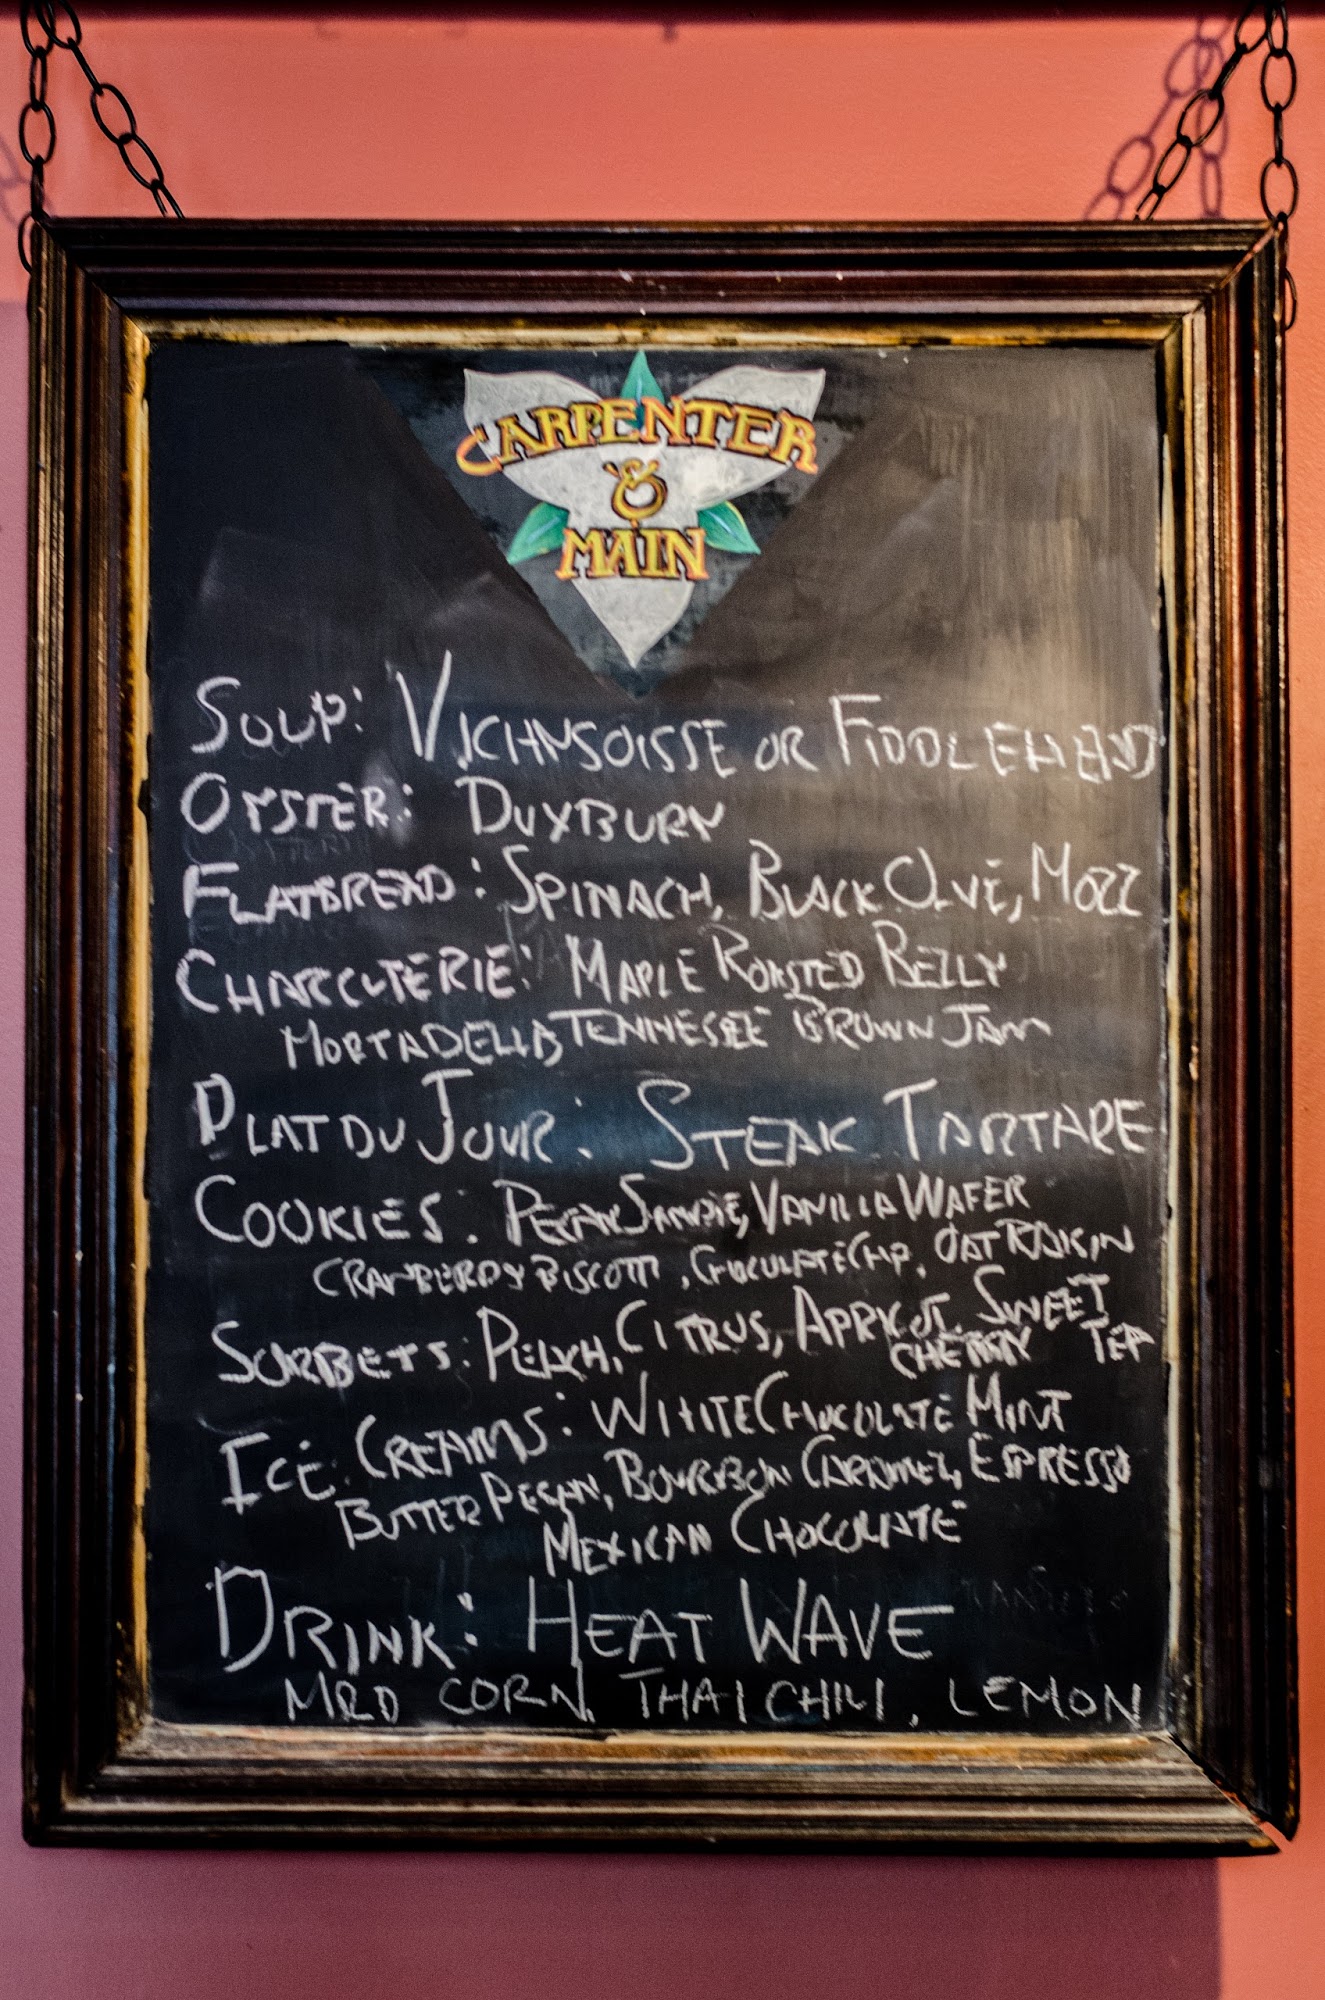 CARPENTER
&
MAIN
SOUP: VICHNSOISSE OR FIDDLEHEAD
OYSTER: DUXBURY
FLATBREAD: SPINACH, BLACK OLVE, MOZZ
CHARCUTERIE: MAPLE ROASTED BELLY
MORTADELLA, TENNESSEE BROWN JAM
PLAT DU JOUR: STEAK TARTARE
COOKIES: PECAN SANDIE, VANILLA WAFER
CRANBERRY BISCOTTI, CHOCOLATE CHIP, OAT RAISIN
SORBETS: PEACH, CITRUS, APRICOT, SWEET
CHERRY TEA
ICE CREAMS: WHITE CHOCOLATE MINT
BUTTER PECAN, BOURBON CARAMEL, ESPRESSO
MEXICAN CHOCOLATE
DRINK: HEAT WAVE
CORN, THAI CHILI, LEMON